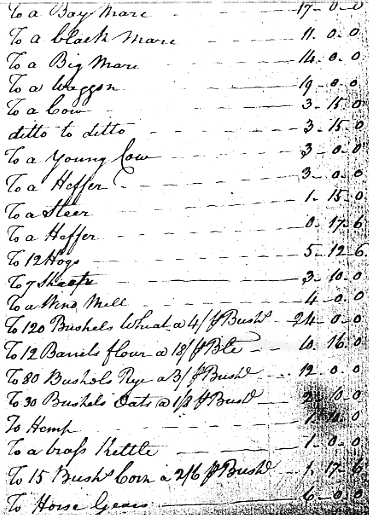 To a Bay Mare 17-0-0
To a black Mare 11.0.0
To a Big Mare 14.0.0
To a Waggon 19.0.0
To a Cow 3-15.0
ditto to ditto 3.15.0
To a Young Cow 3.0.0
To a Heffer 3.0.0
To a Steer 1.15.0
To a Heffer 0.17.6
To 12 Hogs 5-12.6
To 7 Sheep 3.10.0
To a Wind Mill 4.0.0
To 120 Bushels Wheat a 4/ Bushl 24.0.0
To 12 Barrels flour a 18/ 10.16.0
To 80 Bushels Rye a 3/ Bushl 12.0.0
To 30 Bushels Oats a 1/8 Bushl 0.0
To Hemp
To a brass Kettle 1.0.0
To 15 Bushs Corn a 2/6 Bushl 1.17-6
To Horse Gears 6.0.0